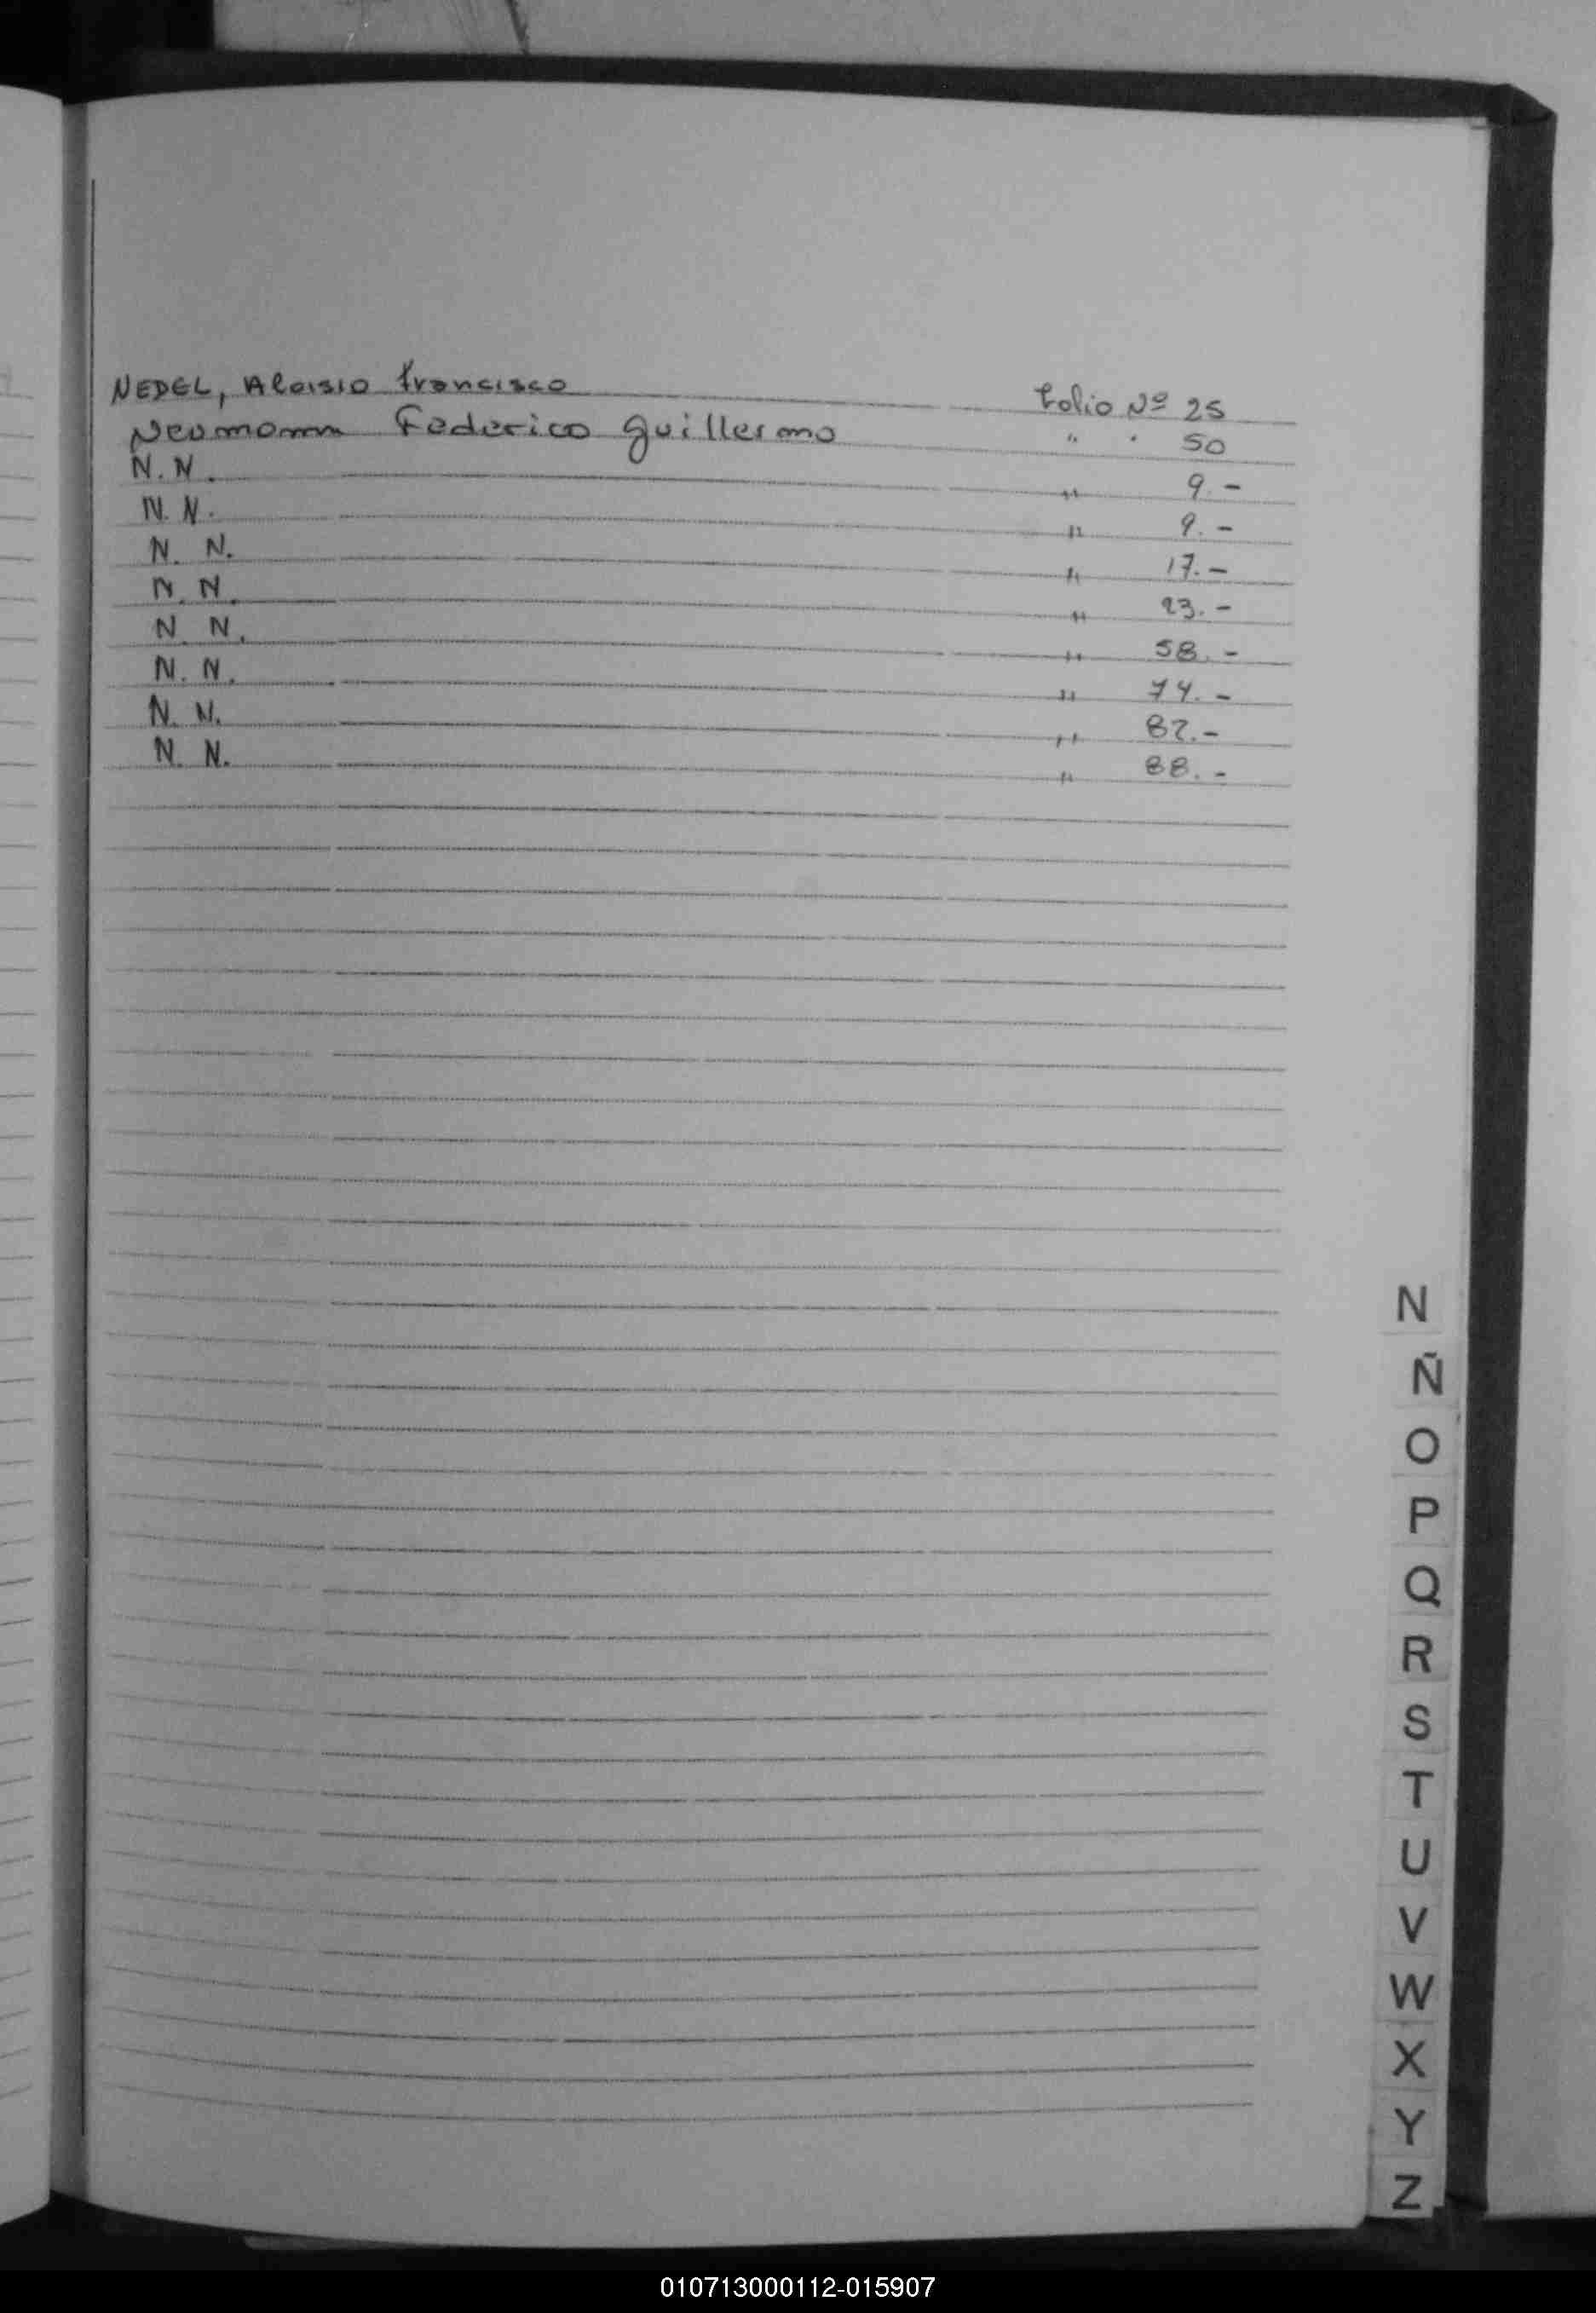 NEDEL, Aloisio Francisco Folio Nº 25
Neumann Federico Guillermo " " 50
N. N. " 9.-
N. N. " 9.-
N. N. " 17.-
N. N. " 23.-
N. N. " 58.-
N. N. " 74.-
N. N. " 82.-
N. N. " 88.-
N
Ñ
O
P
Q
R
S
T
U
V
W
X
Y
Z
010713000112-015907